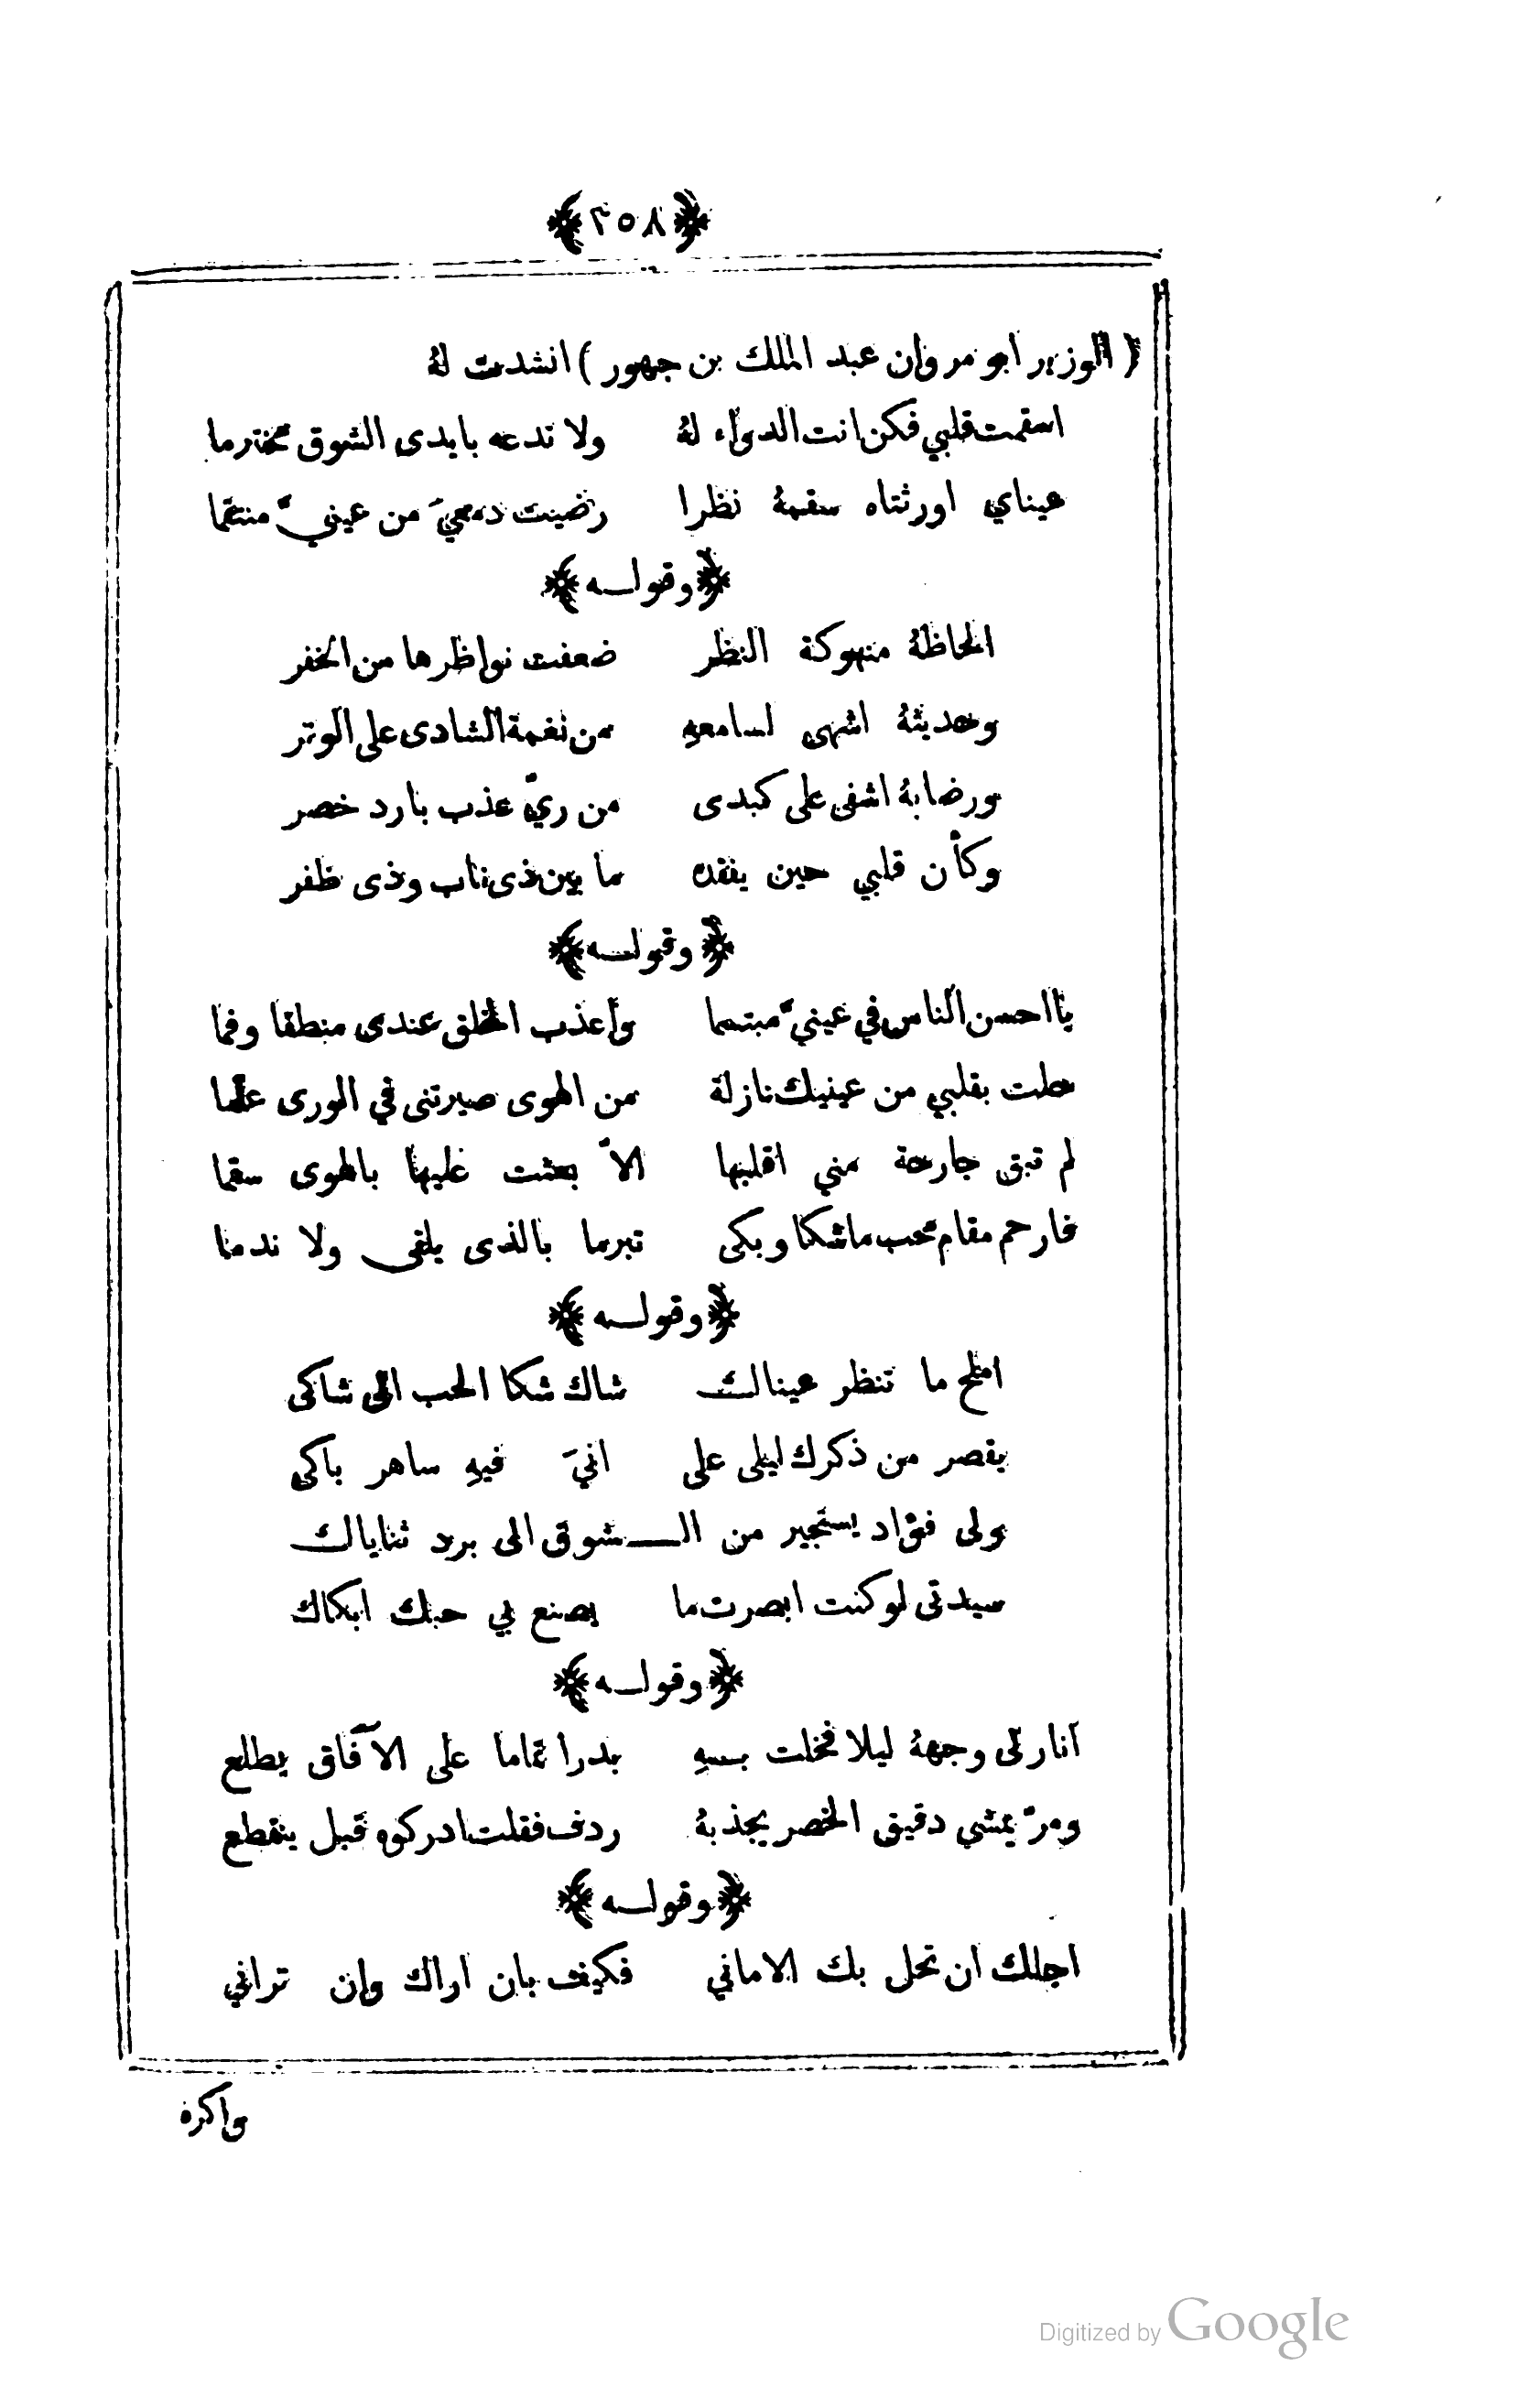 ﴿٢٥٨﴾
( الوزير ابو مروان عبد الملك بن جهور ) انشدت لهُ
اسقمت قلبي فكن انت الدواء لهُ ولا تدعه بايدى الشوق مخترما
عيناي اورثتاه سقمهُ نظرا رضيت دمعيَ من عينيّ منتقما
﴿وقولـه﴾
الحاظهُ منهوكة النظر ضعفت نواظرها من الخفر
وحديثهُ اشهى لسامعهِ من نغمة الشادى على الوتر
ورضابهُ اشفى على كبدى من ريّ عذب بارد خصر
وكأن قلبي حين يفقده ما بين ذى ناب وذى ظفر
﴿وقولـه﴾
يا احسن الناس في عينيّ مبتسما واعذب الخلق عندى منطقا وفما
حلت بقلبي من عينيك نازلة من الهوى صيرتنى في الورى علما
لم تبق جارحة مني اقلبها الاّ بعثت عليها بالهوى سقما
فارحم مقام محب ما شكا وبكى تبرما بالذى يلقى ولا ندما
﴿وقولـه﴾
املح ما تنظر عيناك شاك شكا الحب الى شاكى
يقصر من ذكرك ليلى على انيَ فيهِ ساهر باكى
ولى فؤاد يستجير من الـــشوق الى برد ثناياك
سيدتى لو كنت ابصرت ما يصنع بي حبك ابكاك
﴿وقولـه﴾
انار لى وجههُ ليلا فخلت بـهِ بدرا تماما على الآفاق يطلع
ومرّ يمشي دقيق الخصر يجذبهُ ردف فقلت ادركوه قبل ينقطع
﴿وقولـه﴾
اجلك ان تحل بك الاماني فكيف بان اراك وان تراني
واكره
Digitized by Google